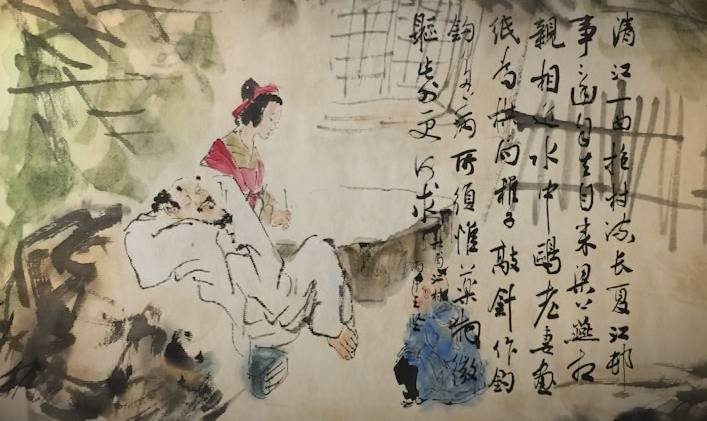 清江一曲抱村流长夏江邨
事〻幽自去自来梁上燕相
親相近水中鷗老妻畫
纸为棋局稚子敲針作钓
钩多病所須惟薬物微
軀此外更何求
杜甫江村